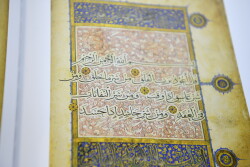 بسم الله الرحمن الرحيم
قل اعوذ برب الفلق من شر ما خلق ومن
شر غاسق اذا وقب ومن شر النفاثات
في العقد ومن شر حاسد اذا حسد